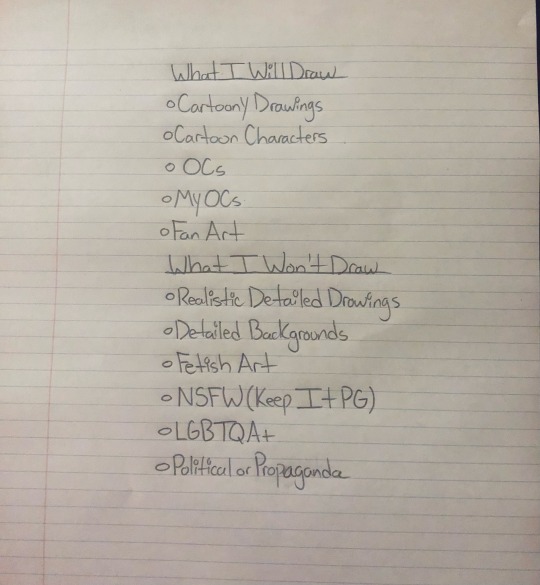 What I Will Draw
○Cartoony Drawings
○Cartoon Characters
○ OCs
○My OCs
○Fan Art
What I Won't Draw
○Realistic Detailed Drawings
○Detailed Backgrounds
○Fetish Art
○NSFW(Keep It PG)
○LGBTQA+
○Political or Propaganda